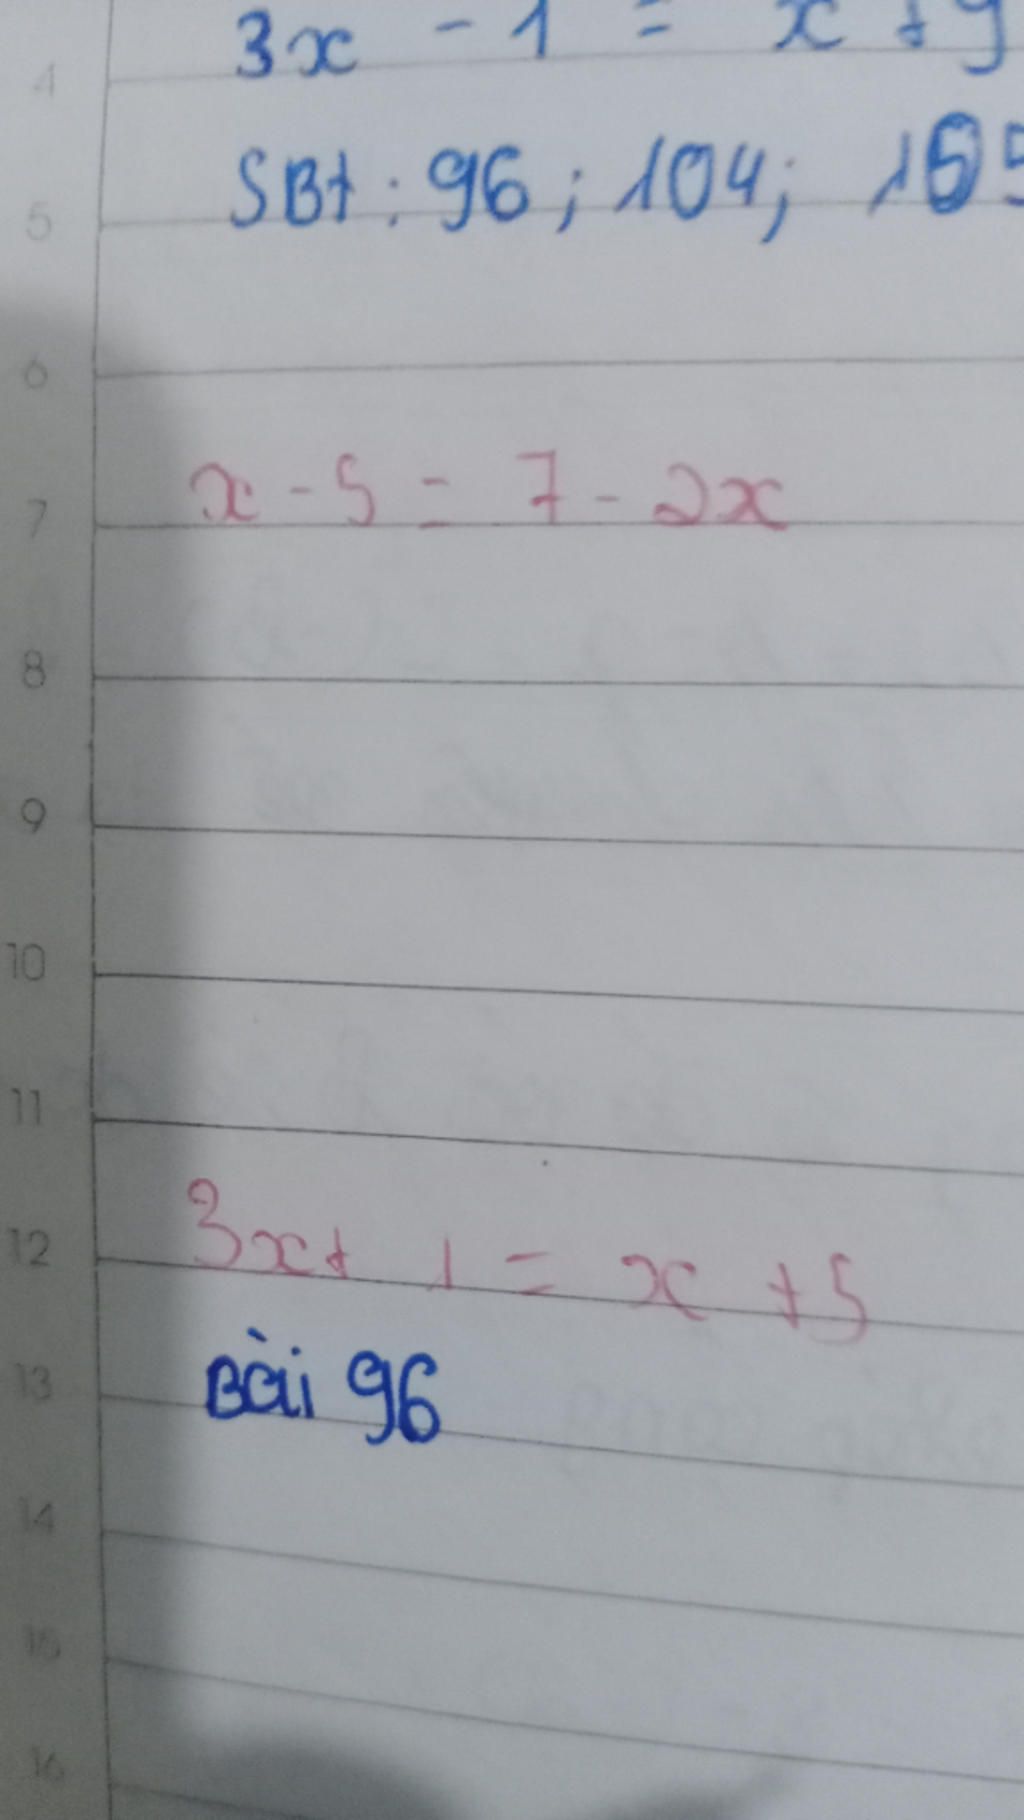 4
3x - 1 = x + 9
5
SBt: 96; 104; 105
6
7
x - 5 = 7 - 2x
8
9
10
11
12
3x + 1 = x + 5
13
Bài 96
14
15
16